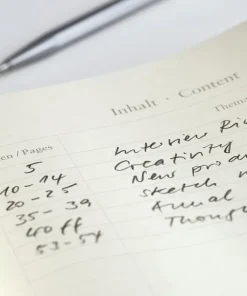 Inhalt · Content
en / Pages Thema
5 Interview Ric
10-14 Creativity
20-25 New prod
35-39 sketch
40 ff Annual
53-54 Thoug